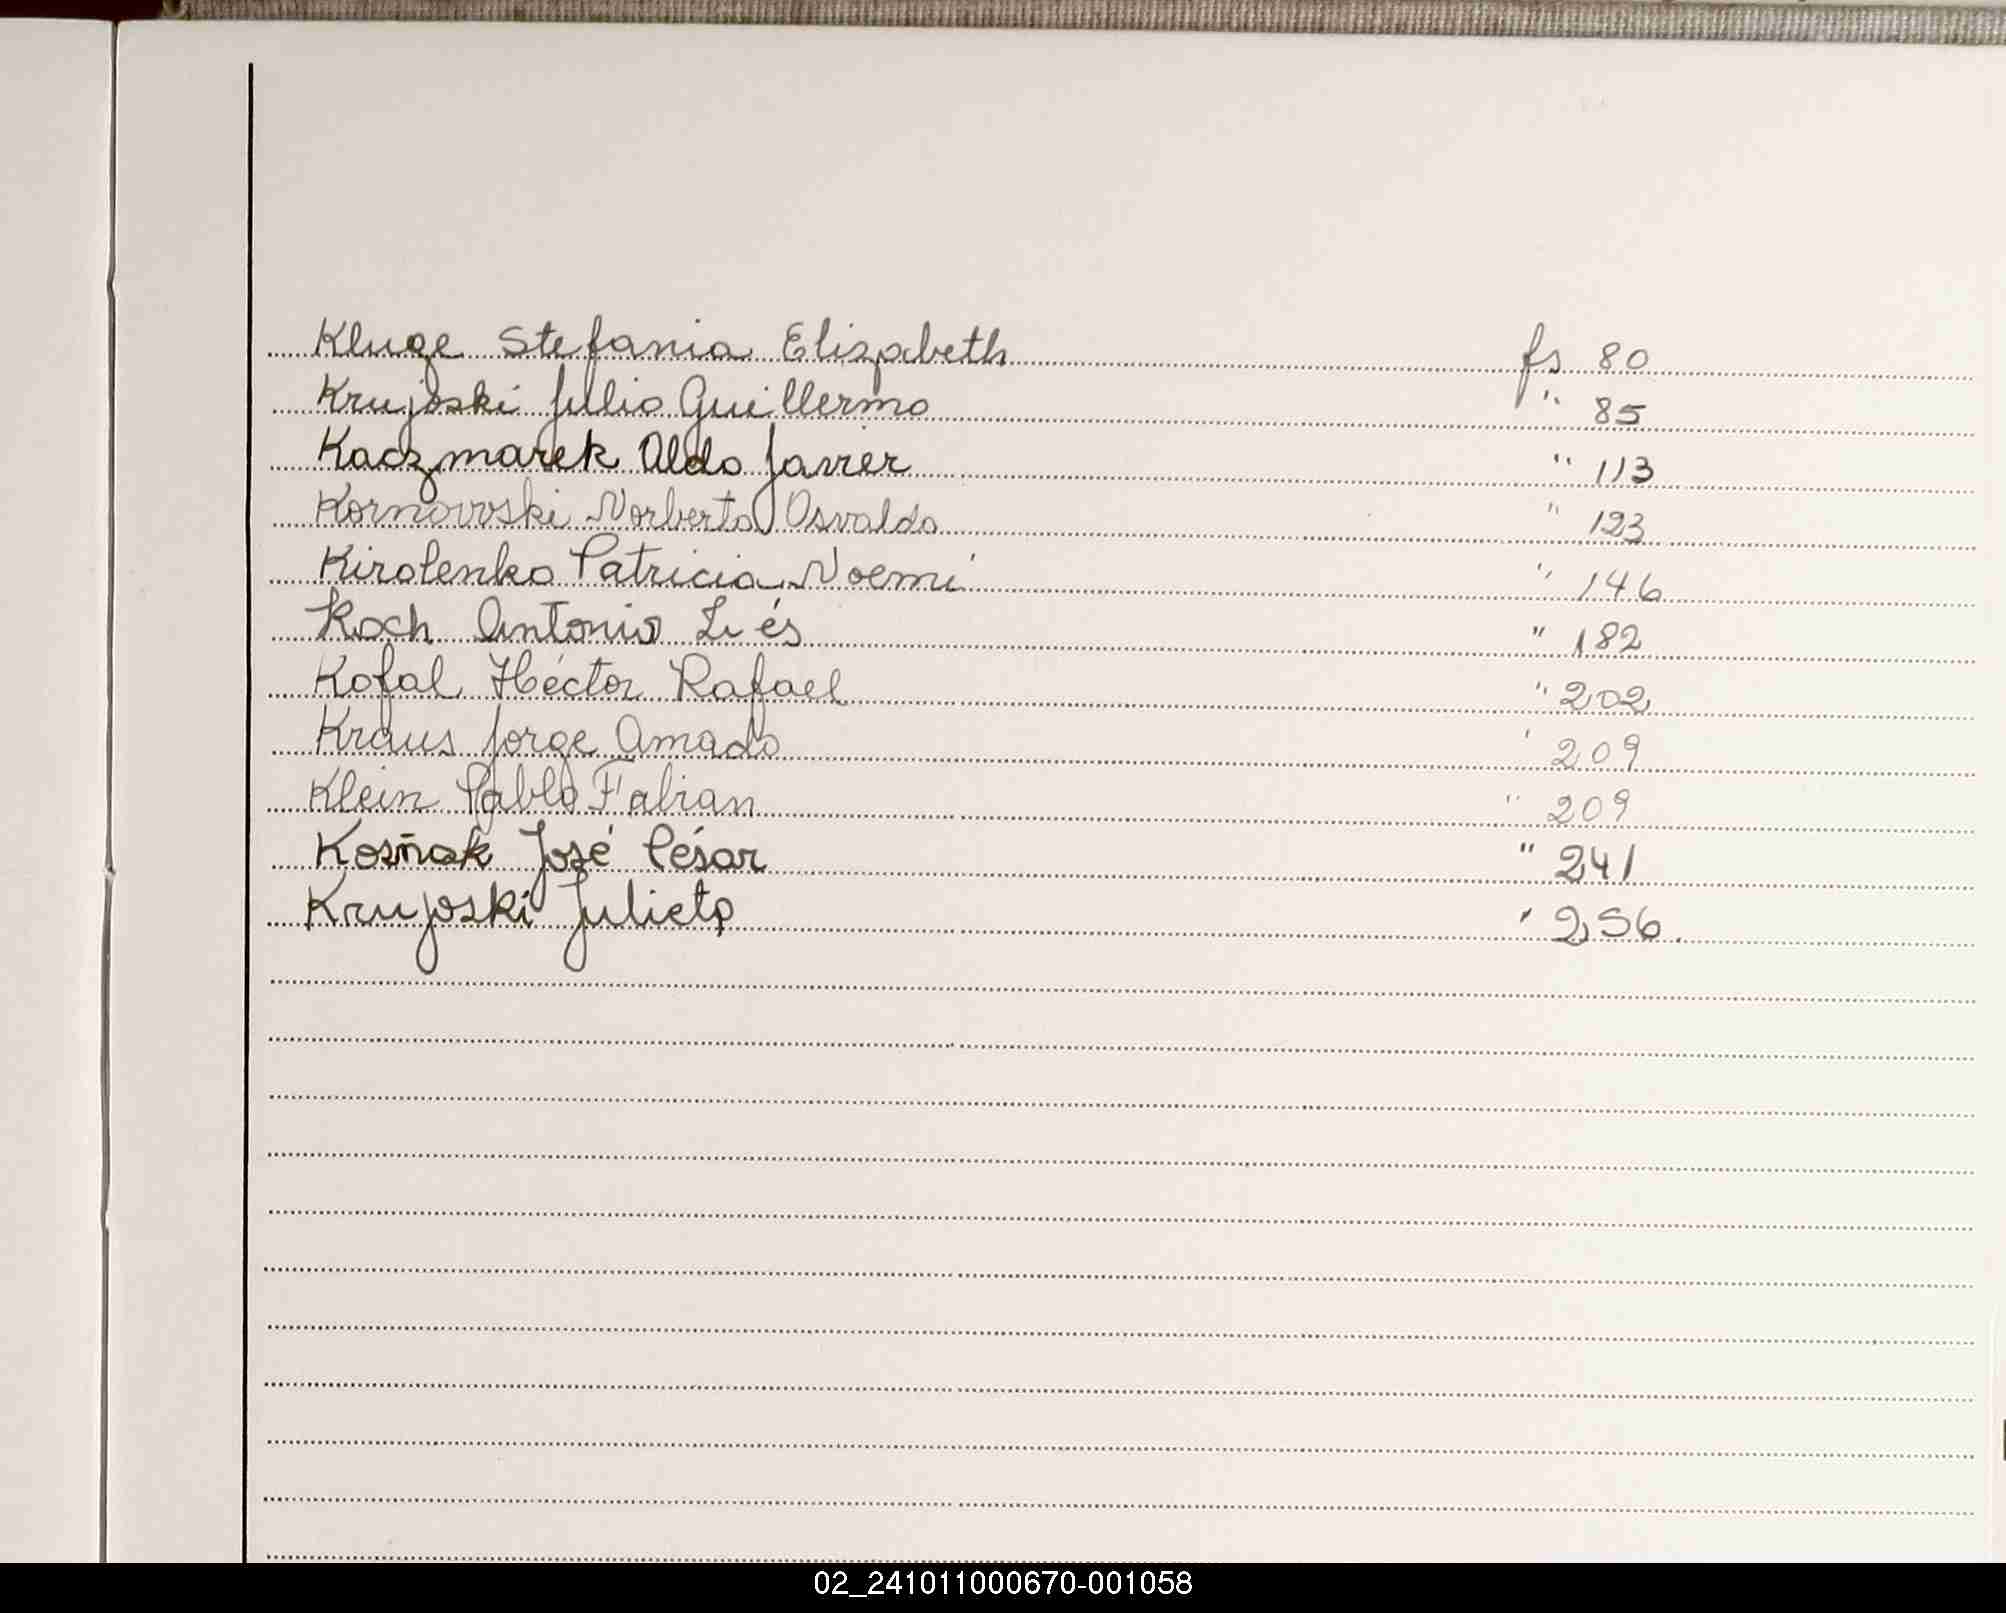 Kluge Stefania Elizabeth fs 80
Krujoski Julio Guillermo " 85
Kaczmarek Aldo Javier " 113
Kornovoski Norberto Osvaldo " 123
Kirolenko Patricia Noemí " 146
Koch Antonio " 182
Kofal Héctor Rafael " 202
Kraus Jorge Amado " 209
Klein Pablo Fabian " 209
Kosñak José César " 241
Krujoski Julieta " 256.
02_241011000670-001058